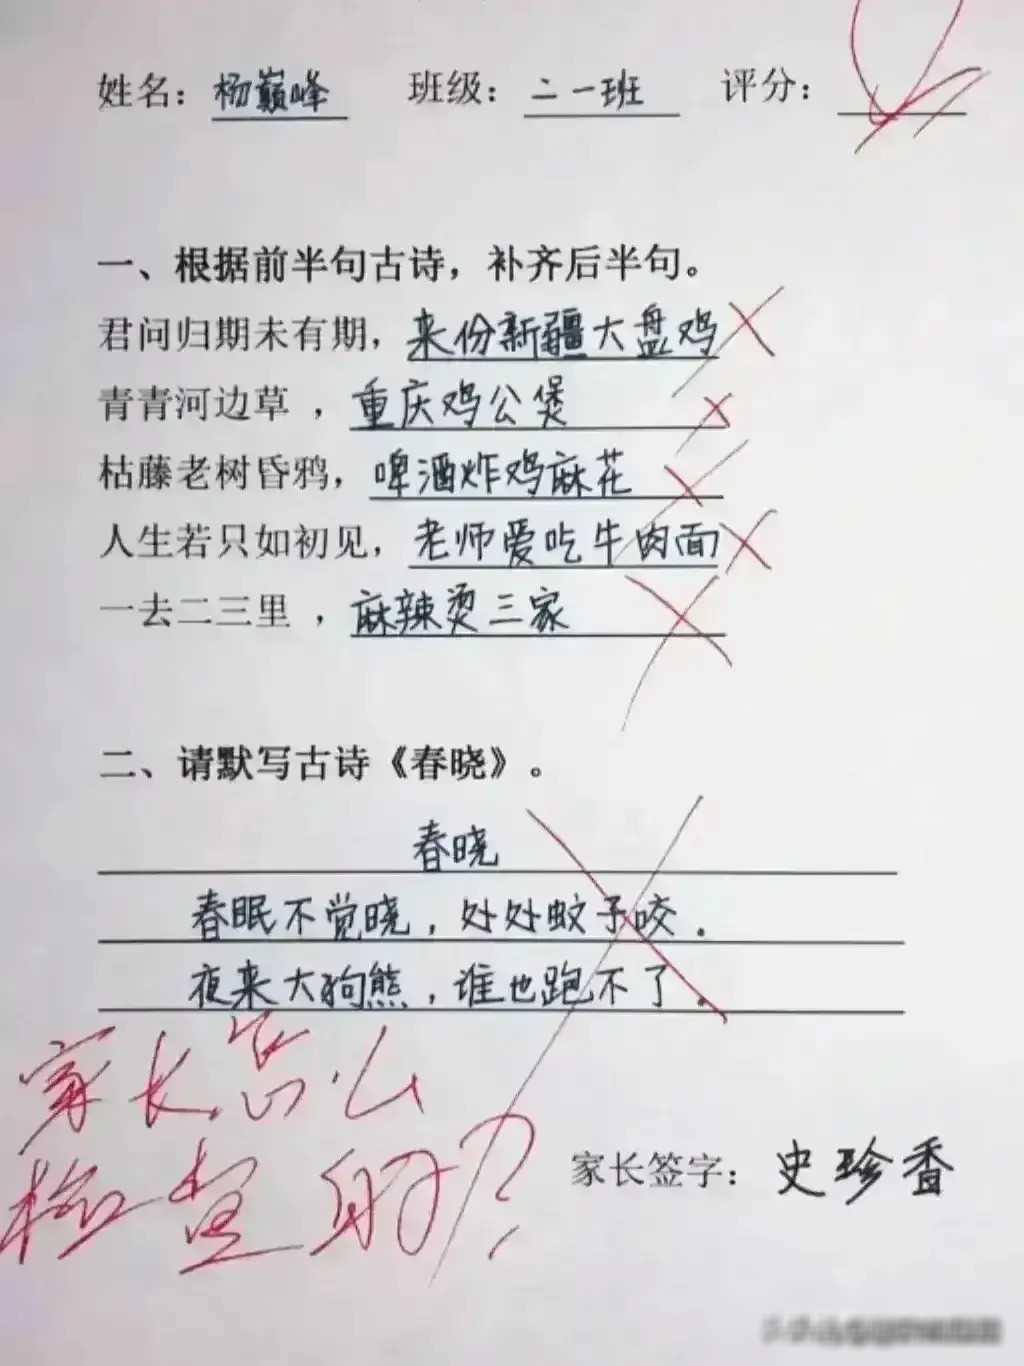 姓名：杨巅峰 班级：二一班 评分：
一、根据前半句古诗，补齐后半句。
君问归期未有期，来份新疆大盘鸡
青青河边草，重庆鸡公煲
枯藤老树昏鸦，啤酒炸鸡麻花
人生若只如初见，老师爱吃牛肉面
一去二三里，麻辣烫三家
二、请默写古诗《春晓》。
春晓
春眠不觉晓，处处蚊子咬。
夜来大狗熊，谁也跑不了。
家长怎么
检查的？
家长签字：史珍香